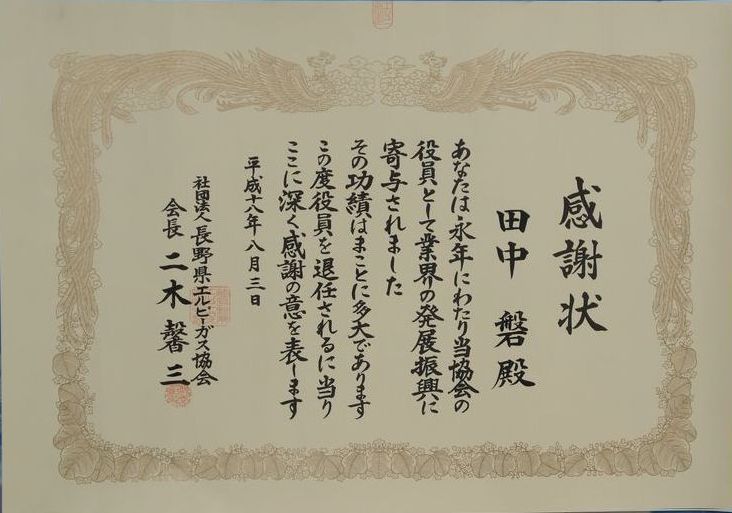 感謝状
田中 磐 殿
あなたは永年にわたり当協会の
役員として業界の発展振興に
寄与されました
その功績はまことに多大であります
この度役員を退任されるに当り
ここに深く感謝の意を表します
平成十八年八月三日
社団法人長野県エルピーガス協会
会長 二木馨三